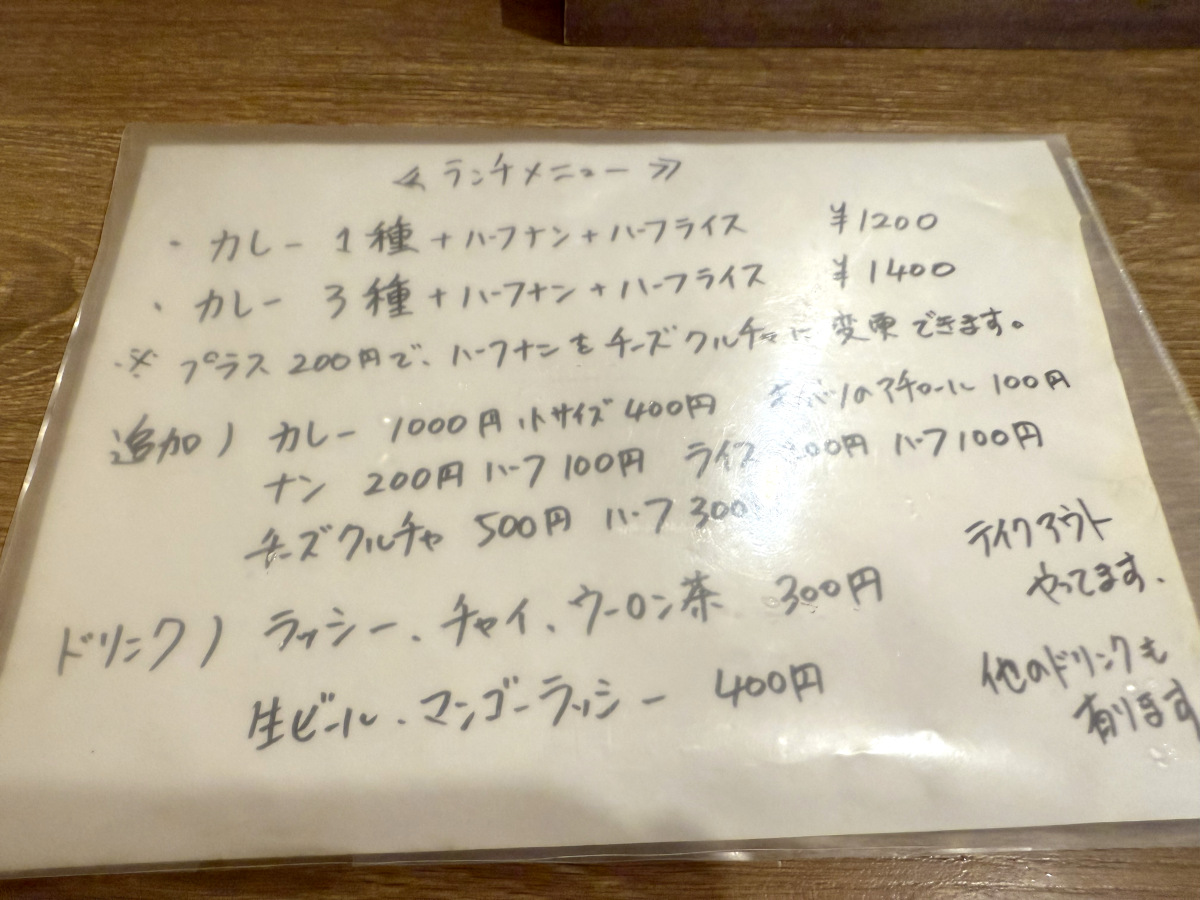 ≪ ランチメニュー ≫
・ カレー 1種 + ハーフナン + ハーフライス ¥1200
・ カレー 3種 + ハーフナン + ハーフライス ¥1400
※ プラス 200円で、ハーフナンをチーズクルチャに変更できます。
追加) カレー 1000円 小サイズ 400円 のアチャール 100円
ナン 200円 ハーフ 100円 ライス 00円 ハーフ 100円
チーズクルチャ 500円 ハーフ 300
テイクアウト
やってます.
ドリンク) ラッシー、チャイ、ウーロン茶 300円
生ビール、マンゴーラッシー 400円
他のドリンクも
有ります